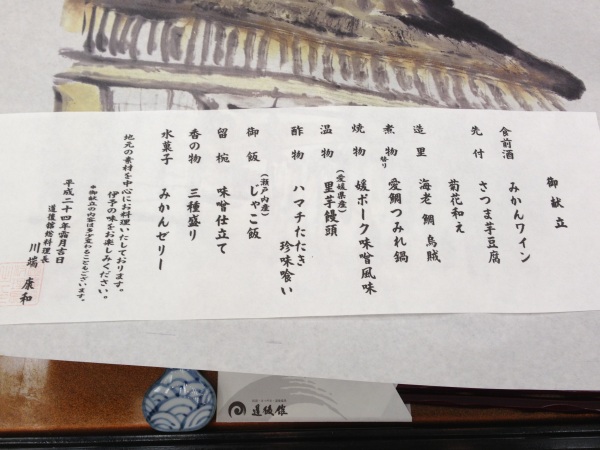 御献立
食前酒 みかんワイン
先付 さつま芋豆腐
菊花和え
造里 海老 鯛 烏賊
煮物替り 愛鯛つみれ鍋
焼物 媛ポーク味噌風味
(愛媛県産)
温物 里芋饅頭
酢物 ハマチたたき
珍味喰い
(瀬戸内産)
御飯 じゃこ飯
留椀 味噌仕立て
香の物 三種盛り
水菓子 みかんゼリー
地元の素材を中心にお料理いたしております。
伊予の味をお楽しみください。
※御献立の内容は多少変わることもございます。
平成二十四年霜月吉日
道後館総料理長
川端 康和
道後館